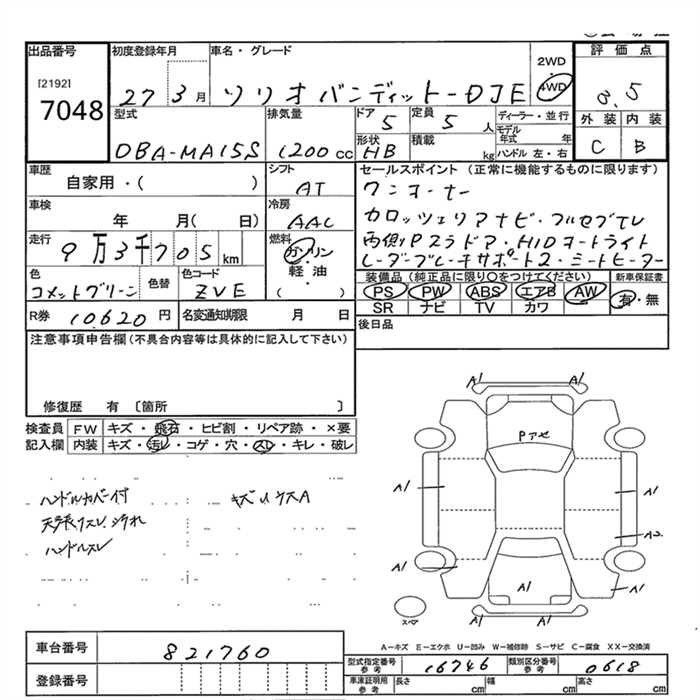 出品番号 初度登録年月 車名・グレード 2WD 4WD 評価点
[2192]
7048 27 3月 ソリオバンディット-DJE 3.5
型式 排気量 ドア 定員 ディーラー・並行 外装 内装
DBA-MA15S 1200cc 5 5人 モデル年式 年 C B
形状 積載 ハンドル 左・右
HB kg
車歴 シフト セールスポイント(正常に機能するものに限ります)
自家用・( ) AT ワンオーナー
車検 冷房 カロッツェリアナビ・フルセグTV
年 月(日) AAC 両側Pスラドア・HIDオートライト
走行 燃料 レーダーブレーキサポート2・シートヒーター
9万3千705km ガソリン 軽油 ( )
色 色替 色コード 装備品(純正品に限り○をつけてください) 新車保証書
コメットグリーン ZVE PS PW ABS エアB AW 有・無
SR ナビ TV カワ
R券 10,620円 名変通知期限 月 日 後日品
注意事項申告欄(不具合内容等は具体的に記入して下さい)
修復歴 有 〔箇所 〕
検査員 FW キズ・飛石・ヒビ割・リペア跡・×要
記入欄 内装 キズ・汚レ・コゲ・穴・スレ・キレ・破レ
ハンドルカバー付 キズ
天張ウスレ、汚れ
ハンドルスレ
A1 A1
Pアセ
A1 A1
A1 A2
A1 A1 A1
スペア A1 A1
A-キズ E-エクボ U-凹み W-補修跡 S-サビ C-腐食 XX-交換済
車台番号 821760 型式指定番号 参考 16746 類別区分番号 参考 0618
登録番号 車庫証明用 参考 長さ cm 幅 cm 高さ cm